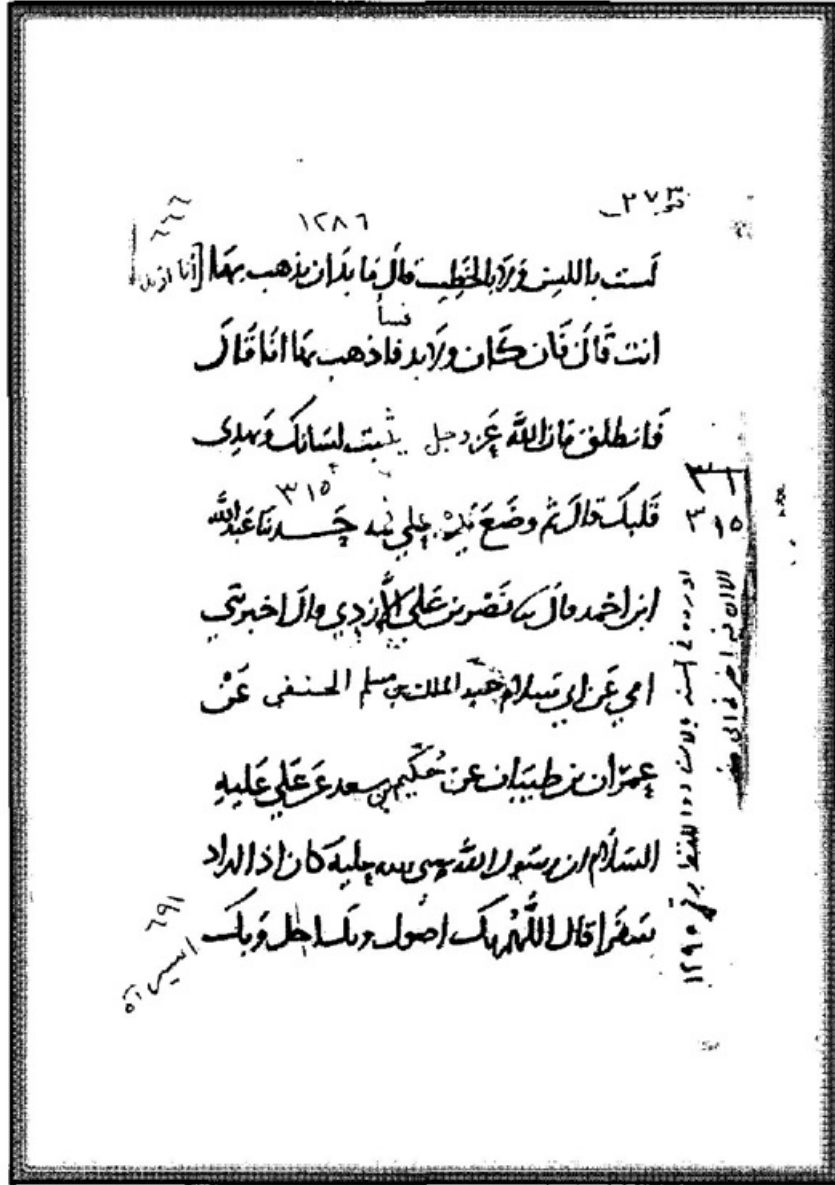 ١٢٨٦
لست باللسن ولا بالخطيب قال ما بد ان يذهب بها [انا او
انت قال فان كان ولا بد فاذهب بها انا قال
فانطلق فان الله عز وجل يثبت لسانك ويهدي
٣١٥
قلبك قال ثم وضع يده علي فيه حدثنا عبدالله
ابن احمد قال نصر بن علي الازدي قال اخبرني
ابي عن ابي سلام عبد الملك بن مسلم الحنفي عن
عمران بن ظبيان عن حكيم بن سعد عن علي عليه
السلام ان رسول الله صلى الله عليه كان اذا اراد
سفرا قال اللهم بك اصول وبك احل وبك
٦٩١
اسير اه
٦٦٦
٣١٥
اورده في المسند برقم ١٢٩٠